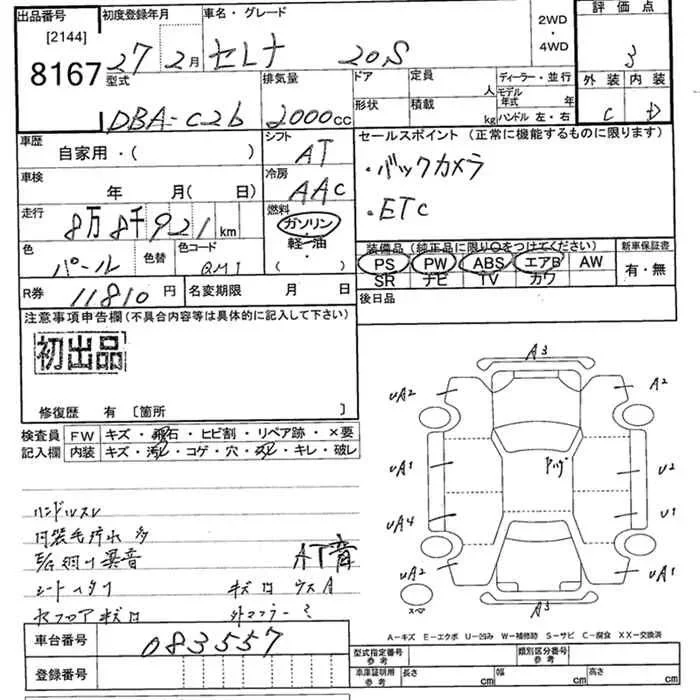 出品番号 初度登録年月 車名・グレード 2WD・4WD 評価点
[2144]
8167 27年 2月 セレナ 20S 3
型式 排気量 ドア 定員 人 ディーラー・並行 外装 内装
形状 積載 kg モデル年式 年 ハンドル 左・右
DBA-C26 2000cc C D
車歴 自家用・( ) シフト AT セールスポイント (正常に機能するものに限ります)
・バックカメラ
車検 年 月( 日) 冷房 AAC
・ETC
走行 8万8千921km 燃料 ガソリン・軽油・( )
色 パール 色替 色コード QM1
装備品 (純正品に限り○をつけてください) 新車保証書
PS PW ABS エアB AW 有・無
SR ナビ TV カワ
R券 11810円 名変期限 月 日 後日品
注意事項申告欄 (不具合内容等は具体的に記入して下さい)
初出品
修復歴 有 [箇所 ]
検査員記入欄 FW キズ・飛石・ヒビ割・リペア跡・×要
内装 キズ・汚レ・コゲ・穴・スレ・キレ・破レ
A3
UA2 A2
UA1 U2
UA4 U1
UA2 UA1
A3
スペ
ハンドルスレ
AT音
外マフラー
A-キズ E-エクボ U-凹み W-補修跡 S-サビ C-腐食 XX-交換済
車台番号 083557
登録番号
型式指定番号 参考 類別区分番号 参考
車庫証明用 参考 長さ cm 幅 cm 高さ cm